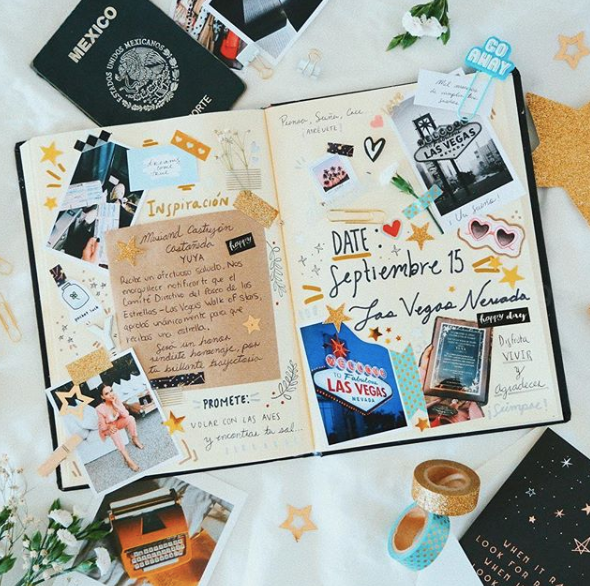 MEXICO
ESTADOS UNIDOS MEXICANOS
GO
AWAY
Inspiración
Mariand Castrejón
Castañeda
YUYA
happy
Recibe un afectuoso saludo. Nos
enorgullece notificarte que el
Comité Directivo del Paseo de las
Estrellas - Las Vegas Walk of Stars,
aprobó unánimemente para que
recibas una estrella.
Será un honor
rendirte homenaje, por
tu brillante trayectoria
PROMETE:
VOLAR CON LAS AVES
y encontrar tu sol...
Piensa, Sueña, Cree
(ATRÉVETE)
WELCOME
LAS VEGAS
¡Un sueño!
DATE:
Septiembre 15
Las Vegas Nevada
happy day
WELCOME
To Fabulous
LAS VEGAS
NEVADA
Disfruta
VIVIR
y
Agradecer
¡Siempre!
WHEN IT R
LOOK FOR R
WHEN
LOOK